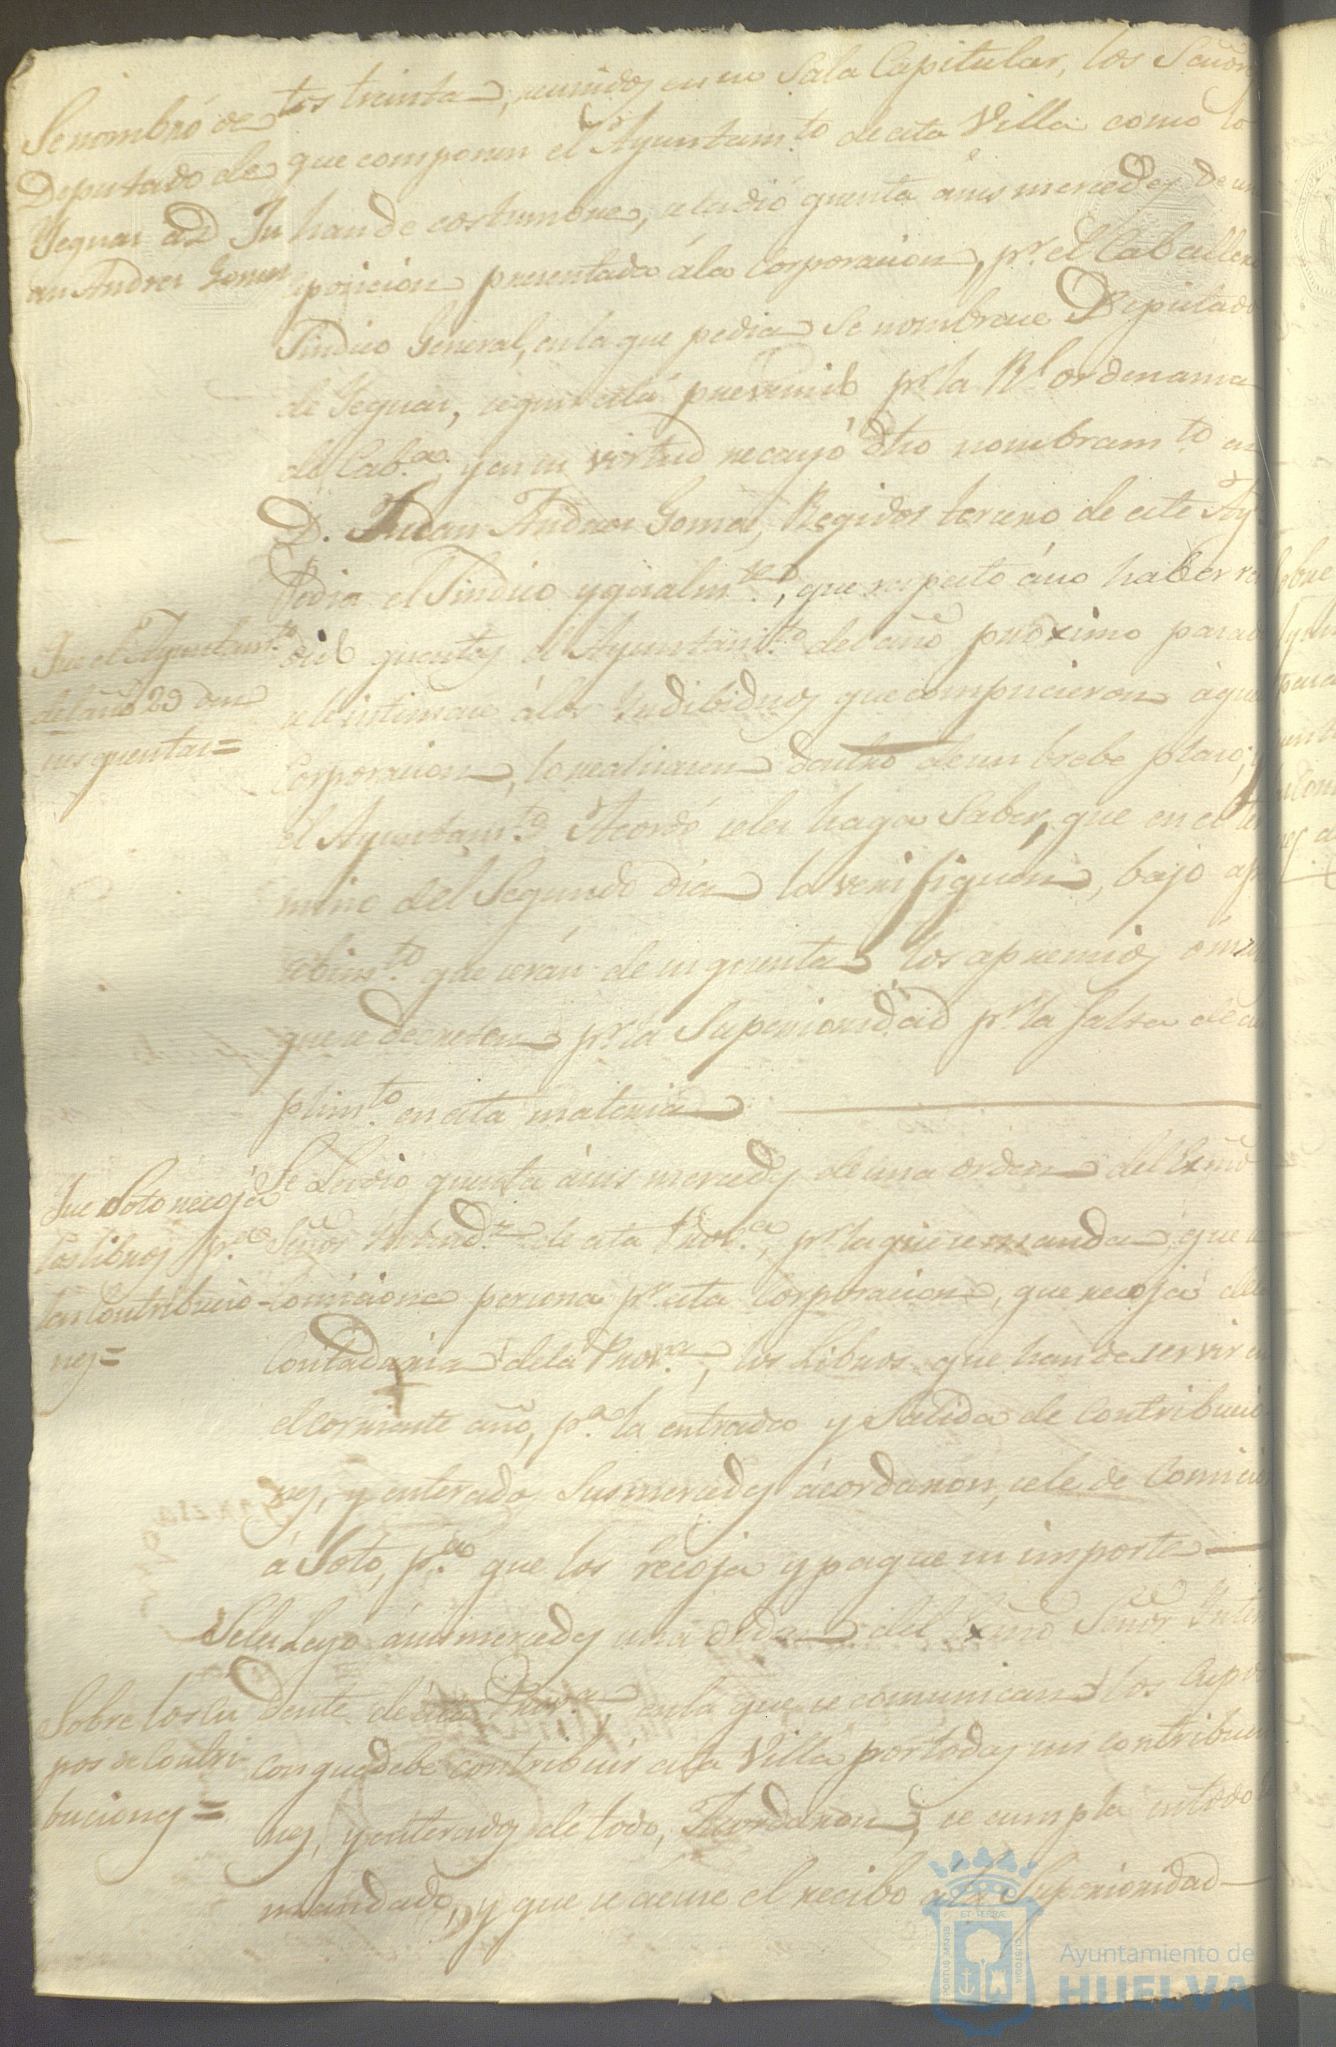 Se nombró de
Deputado de
Yeguas á D Ju
an Andres Gomez
tos treinta, reunidos en su Sala Capitular, los Señores
que componen el Ayuntam.to de esta Villa como lo
han de costumbre, se la dió quenta á sus mercedes de una
sposicion presentada á la Corporacion, pr. el Caballero
Sindico General, en la que pedia Se nombrase Diputado
de Yeguas, segun está prevenido pr. la Rl ordenansa
de Cab.as y en su virtud recayó dho nombram.to en
D. Juan Andres Gomez, Regidor tersero de este Ay.
Pedia el Sindico ygualm.te, que respecto á no haber re
dido quentas el Ayuntam.to del año próximo pasado
se le intimase á los Yndibiduos que compucieron aque
Corporacion, lo realizasen dentro de un brebe plaso, y
el Ayuntam.to Acordó se les haga Saber, que en el ter
mino del Segundo dia lo verifiquen, bajo aper
sebim.to que serán de su quenta los apremios
que se decreten pr. la Superioridad pr. la falta de cum
plim.to en esta materia
Que el Ayuntam.to
del año 29 den
sus quentas=
Que Soto recoja
los libros p.a
las Contribucio-
nes=
Se dió quenta á sus mercedes de una orden del Exmo
Señor Yntend.te de esta Prov.a, pr. la que se manda que se
comicione persona pr. esta Corporacion, que recoja de la
Contaduria de la Prov.a, los Libros que han de servir en
el corriente año, p.a la entrada y Salida de Contribucio
nes, y enterados Sus mercedes acordaron, se le de Comicion
á Soto, p.a que los recoja y pague su importe
Se les Leyó á sus mercedes una orden del Exmo Señor Inten
dente de esta Prov.a, en la que se comunican los Cupos
con que debe contribuir esta Villa por todas sus contribucio
nes, y enterados de todo, Acordaron, se cumpla en todo lo
mandado, y que se acuse el recibo á la Superioridad
Sobre los cu
pos de Contri-
buciones=
Ayuntamiento de
HUELVA